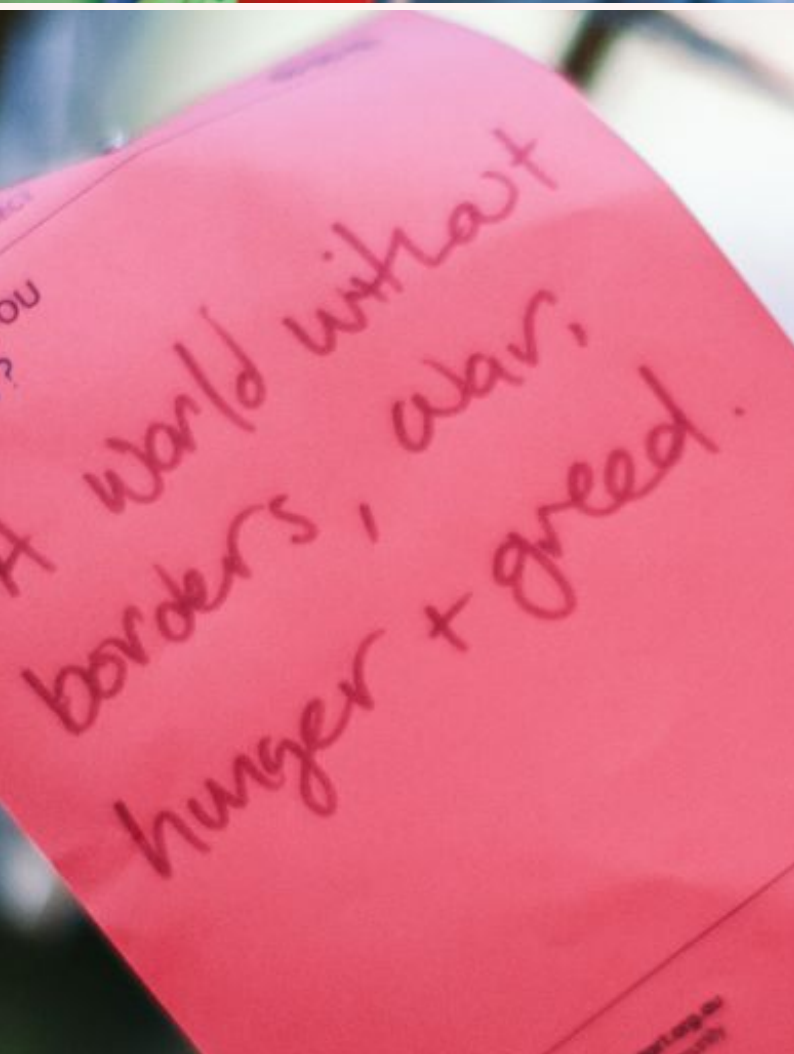 OU
?
A world without
borders, war,
hunger + greed.